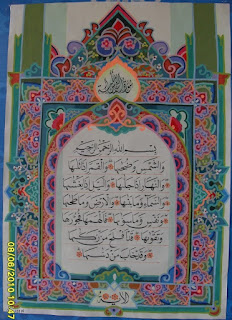 بِسْمِ اللهِ الرَّحْمٰنِ الرَّحِيْمِ
وَالشَّمْسِ وَضُحٰىهَا وَالْقَمَرِ اِذَا تَلٰىهَا
وَالنَّهَارِ اِذَا جَلّٰىهَا وَالَّيْلِ اِذَا يَغْشٰىهَا
وَالسَّمَاءِ وَمَا بَنٰىهَا وَالْاَرْضِ وَمَا طَحٰىهَا
وَنَفْسٍ وَمَا سَوّٰىهَا فَاَلْهَمَهَا فُجُوْرَهَا
وَتَقْوٰىهَا قَدْ اَفْلَحَ مَنْ زَكّٰىهَا
وَقَدْ خَابَ مَنْ دَسّٰىهَا
08/06/2010 10:47